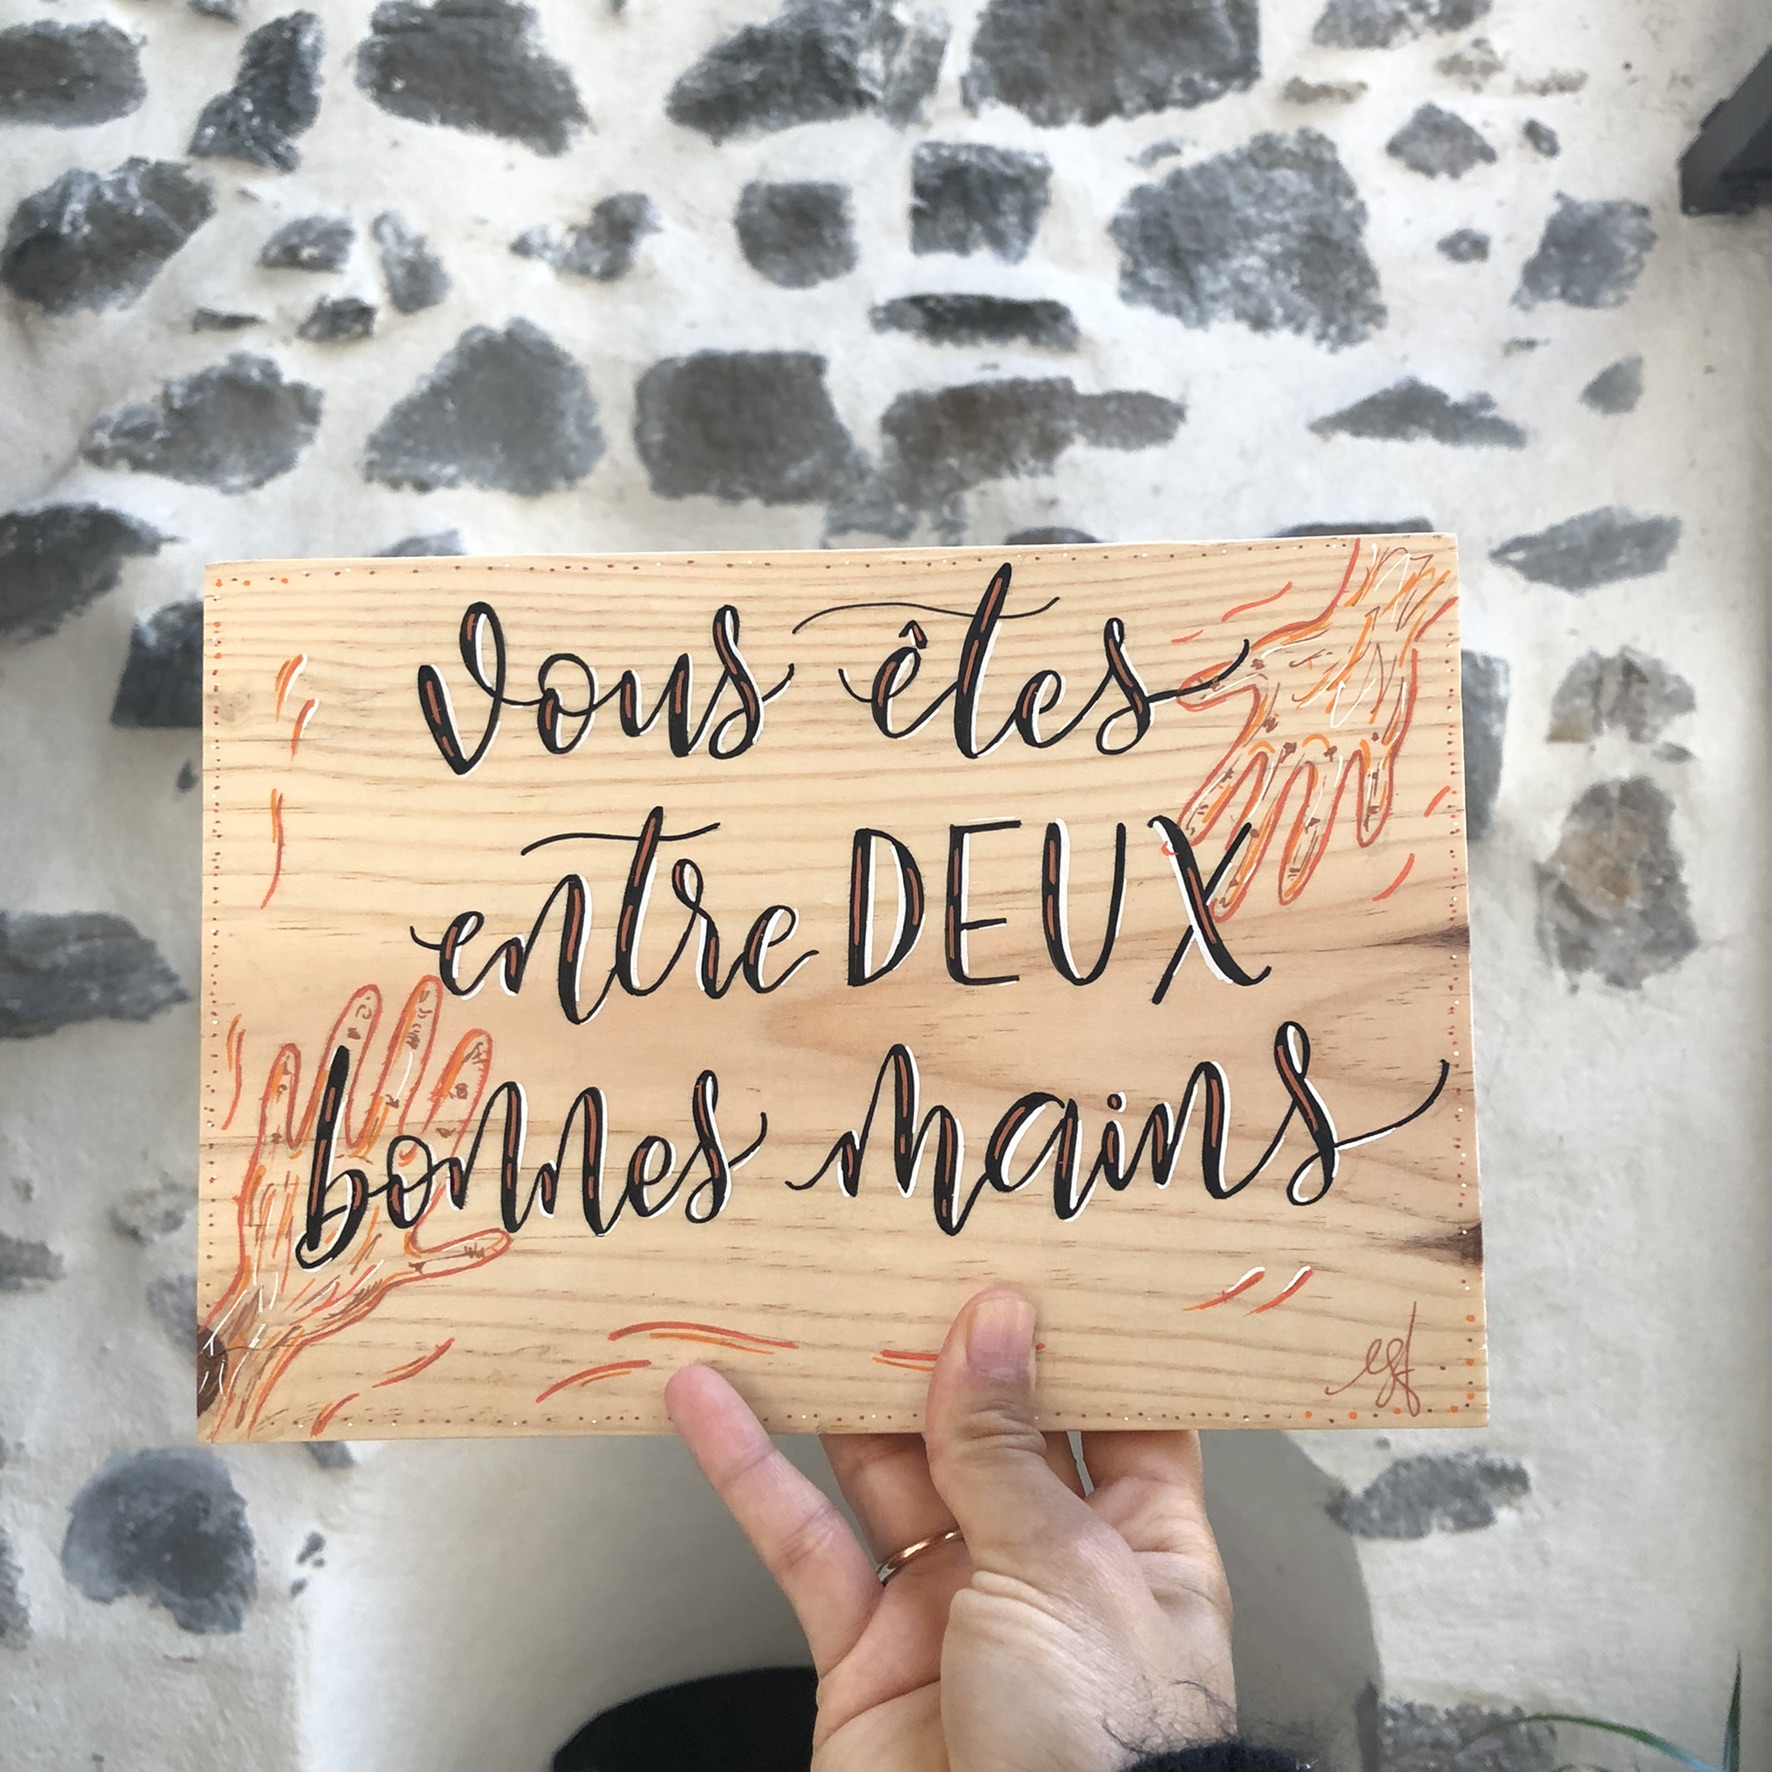 vous êtes
entre DEUX
bonnes mains
esf